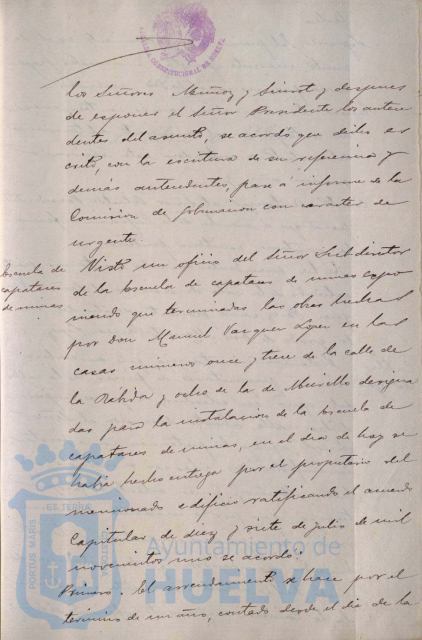 los Señores Muñoz y Siurot y despues
de exponer el Señor Presidente los antece
dentes del asunto, se acordó que dicho es
crito, con la escritura de su referencia y
demás antecedentes, pase á informe de la
Comision de Gobernacion con caracter de
urgente.
Escuela de
capataces
de minas
Visto un oficio del Señor Subdirector
de la Escuela de capataces de minas expo
niendo que terminadas las obras hechas
por Don Manuel Vazquez Lopez en las
casas números once y trece de la calle de
la Rábida y ocho de la de Murillo designa
das para la instalacion de la Escuela de
capataces de minas, en el dia de hoy se
habia hecho entrega por el propietario del
mencionado edificio ratificando el acuerdo
Capitular de diez y siete de Julio de mil
novecientos uno se acordó:
Primero. El arrendamiento se hace por el
termino de un año, contado desde el dia de la
PORTUS MARIS
ET TERRAE
Ayuntamiento de
HUELVA